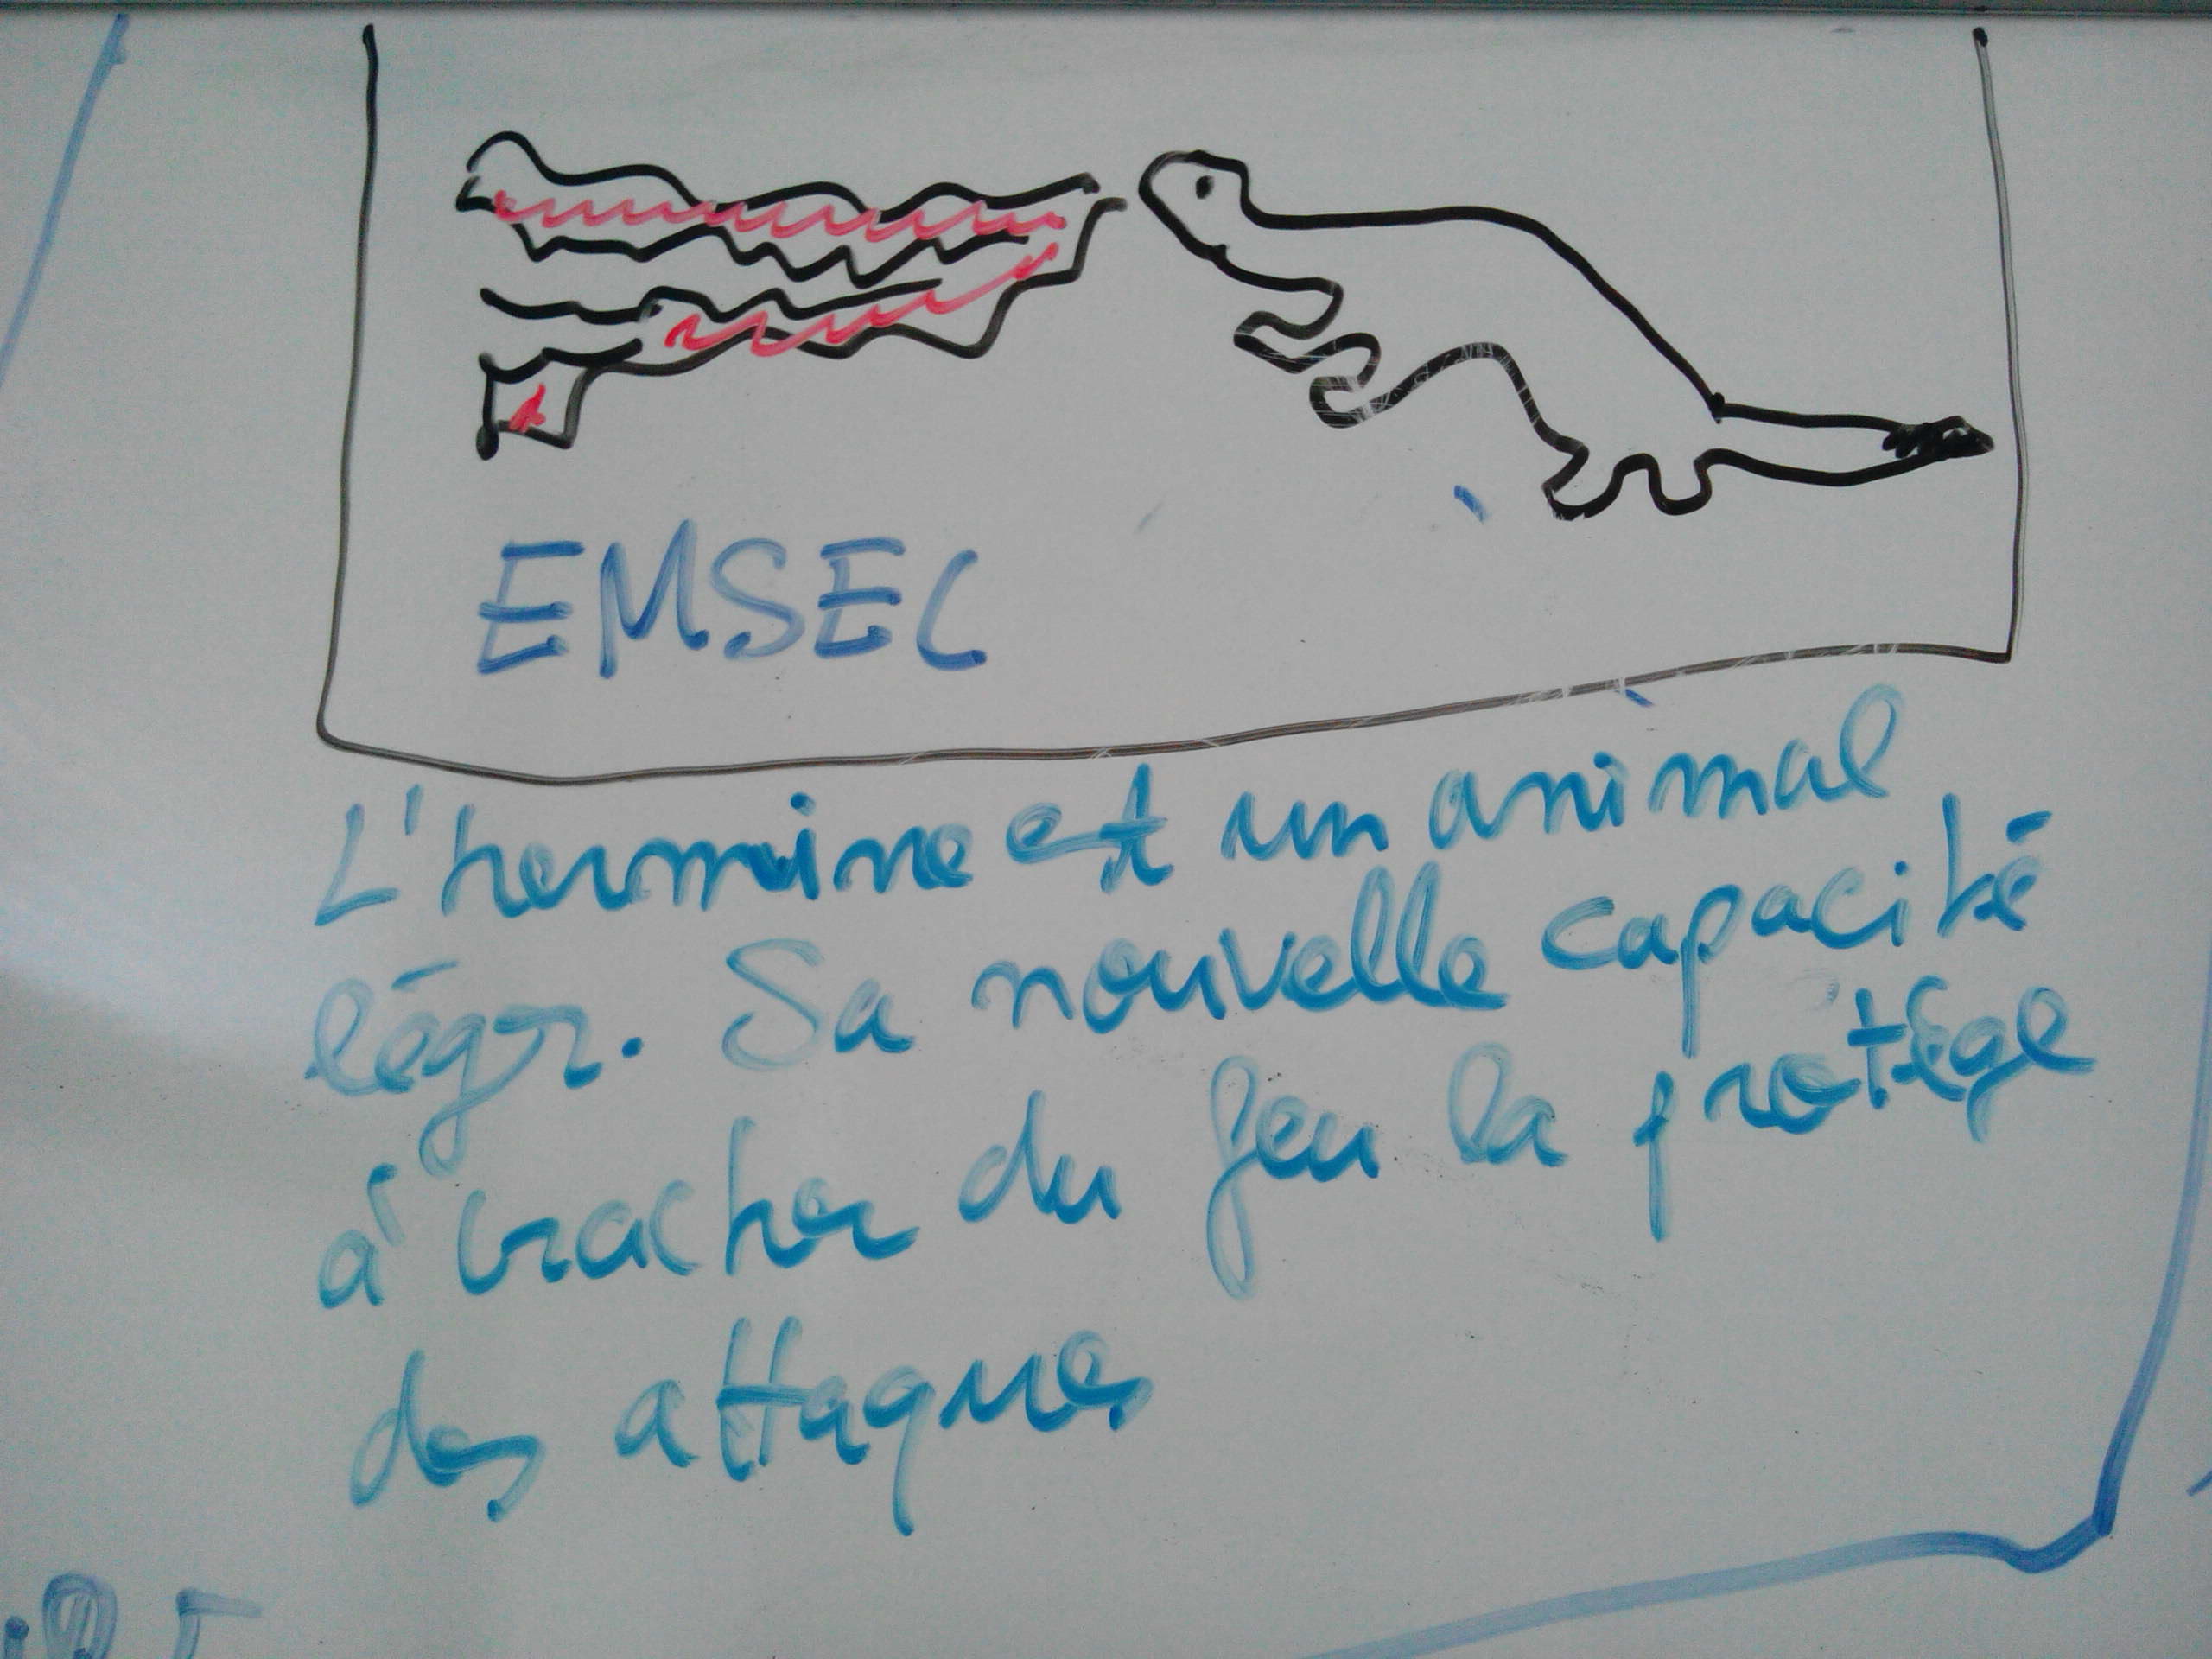 EMSEC
L'hermine est un animal
légr. Sa nouvelle capacité
à cracher du feu la protège
des attaques